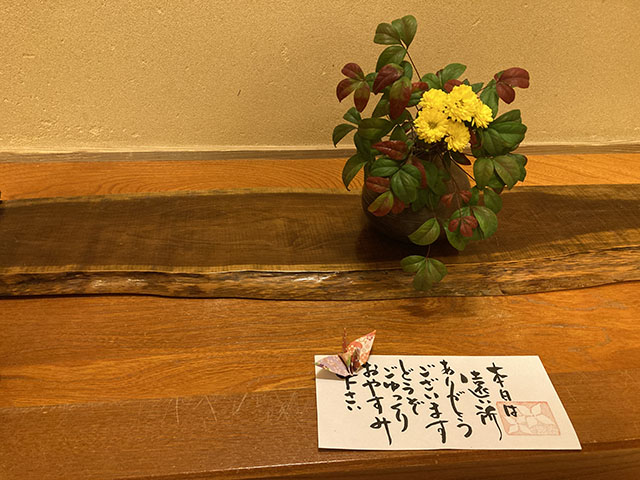 本日は
遠い所
ありがとう
ございます
どうぞ
ごゆっくり
おやすみ
下さい